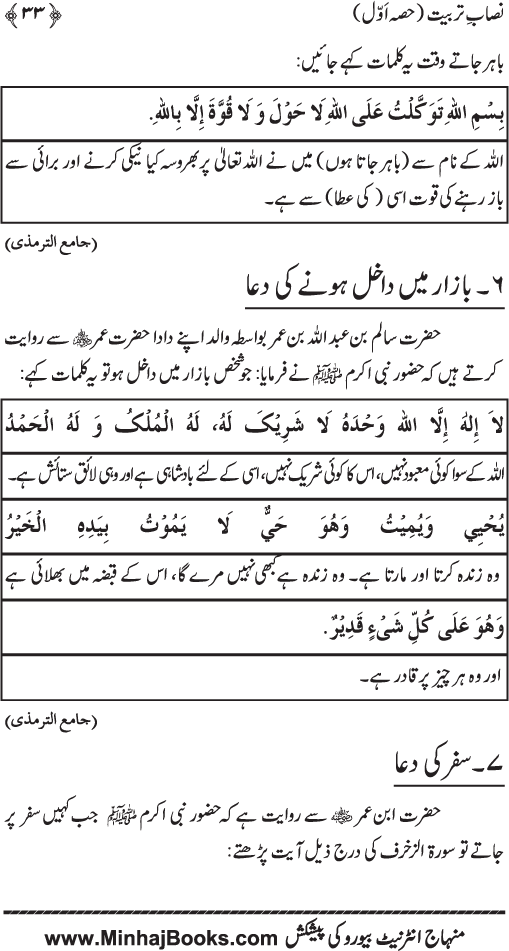 نصابِ تربیت (حصہ اَوّل) ﴿۳۳﴾
باہر جاتے وقت یہ کلمات کہے جائیں:
بِسْمِ اللهِ تَوَكَّلْتُ عَلَى اللهِ لَا حَوْلَ وَ لَا قُوَّةَ إِلَّا بِاللهِ.
اللہ کے نام سے (باہر جاتا ہوں) میں نے اللہ تعالیٰ پر بھروسہ کیا نیکی کرنے اور برائی سے
باز رہنے کی قوت اسی (کی عطا) سے ہے۔
(جامع الترمذی)
۶۔ بازار میں داخل ہونے کی دعا
حضرت سالم بن عبد اللہ بن عمر بواسطہ والد اپنے دادا حضرت عمر ؓ سے روایت
کرتے ہیں کہ حضور نبی اکرم ﷺ نے فرمایا: جو شخص بازار میں داخل ہو تو یہ کلمات کہے:
لاَ إِلٰهَ إِلَّا الله وَحْدَهُ لَا شَرِيْكَ لَهُ، لَهُ الْمُلْكُ وَ لَهُ الْحَمْدُ
اللہ کے سوا کوئی معبود نہیں، اس کا کوئی شریک نہیں، اسی کے لئے بادشاہی ہے اور وہی لائق ستائش ہے۔
يُحْيِي وَيُمِيْتُ وَهُوَ حَيٌّ لَا يَمُوْتُ بِيَدِهِ الْخَيْرُ
وہ زندہ کرتا اور مارتا ہے۔ وہ زندہ ہے کبھی نہیں مرے گا، اس کے قبضہ میں بھلائی ہے
وَهُوَ عَلَى كُلِّ شَيْءٍ قَدِيْرٌ.
اور وہ ہر چیز پر قادر ہے۔
(جامع الترمذی)
۷۔ سفر کی دعا
حضرت ابن عمر ؓ سے روایت ہے کہ حضور نبی اکرم ﷺ جب کہیں سفر پر
جاتے تو سورۃ الزخرف کی درج ذیل آیت پڑھتے:
منہاج انٹرنیٹ بیورو کی پیشکش www.MinhajBooks.com